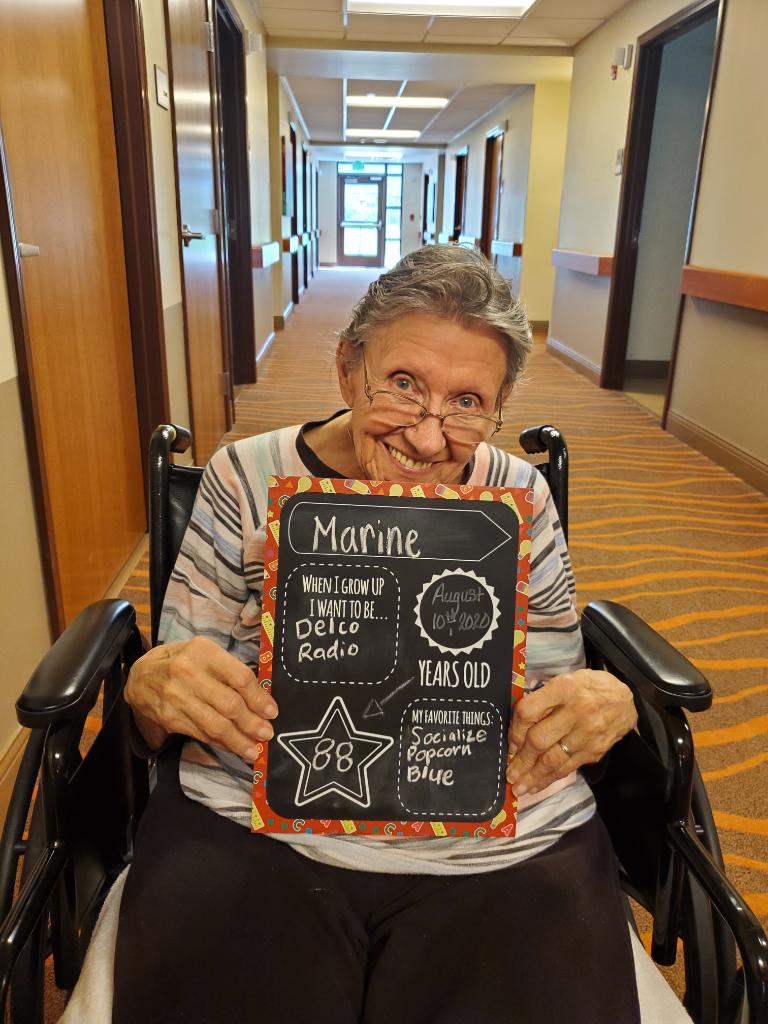 Marine
WHEN I GROW UP
I WANT TO BE...
Delco
Radio
August
10th, 2020
YEARS OLD
88
MY FAVORITE THINGS:
Socialize
Popcorn
Blue